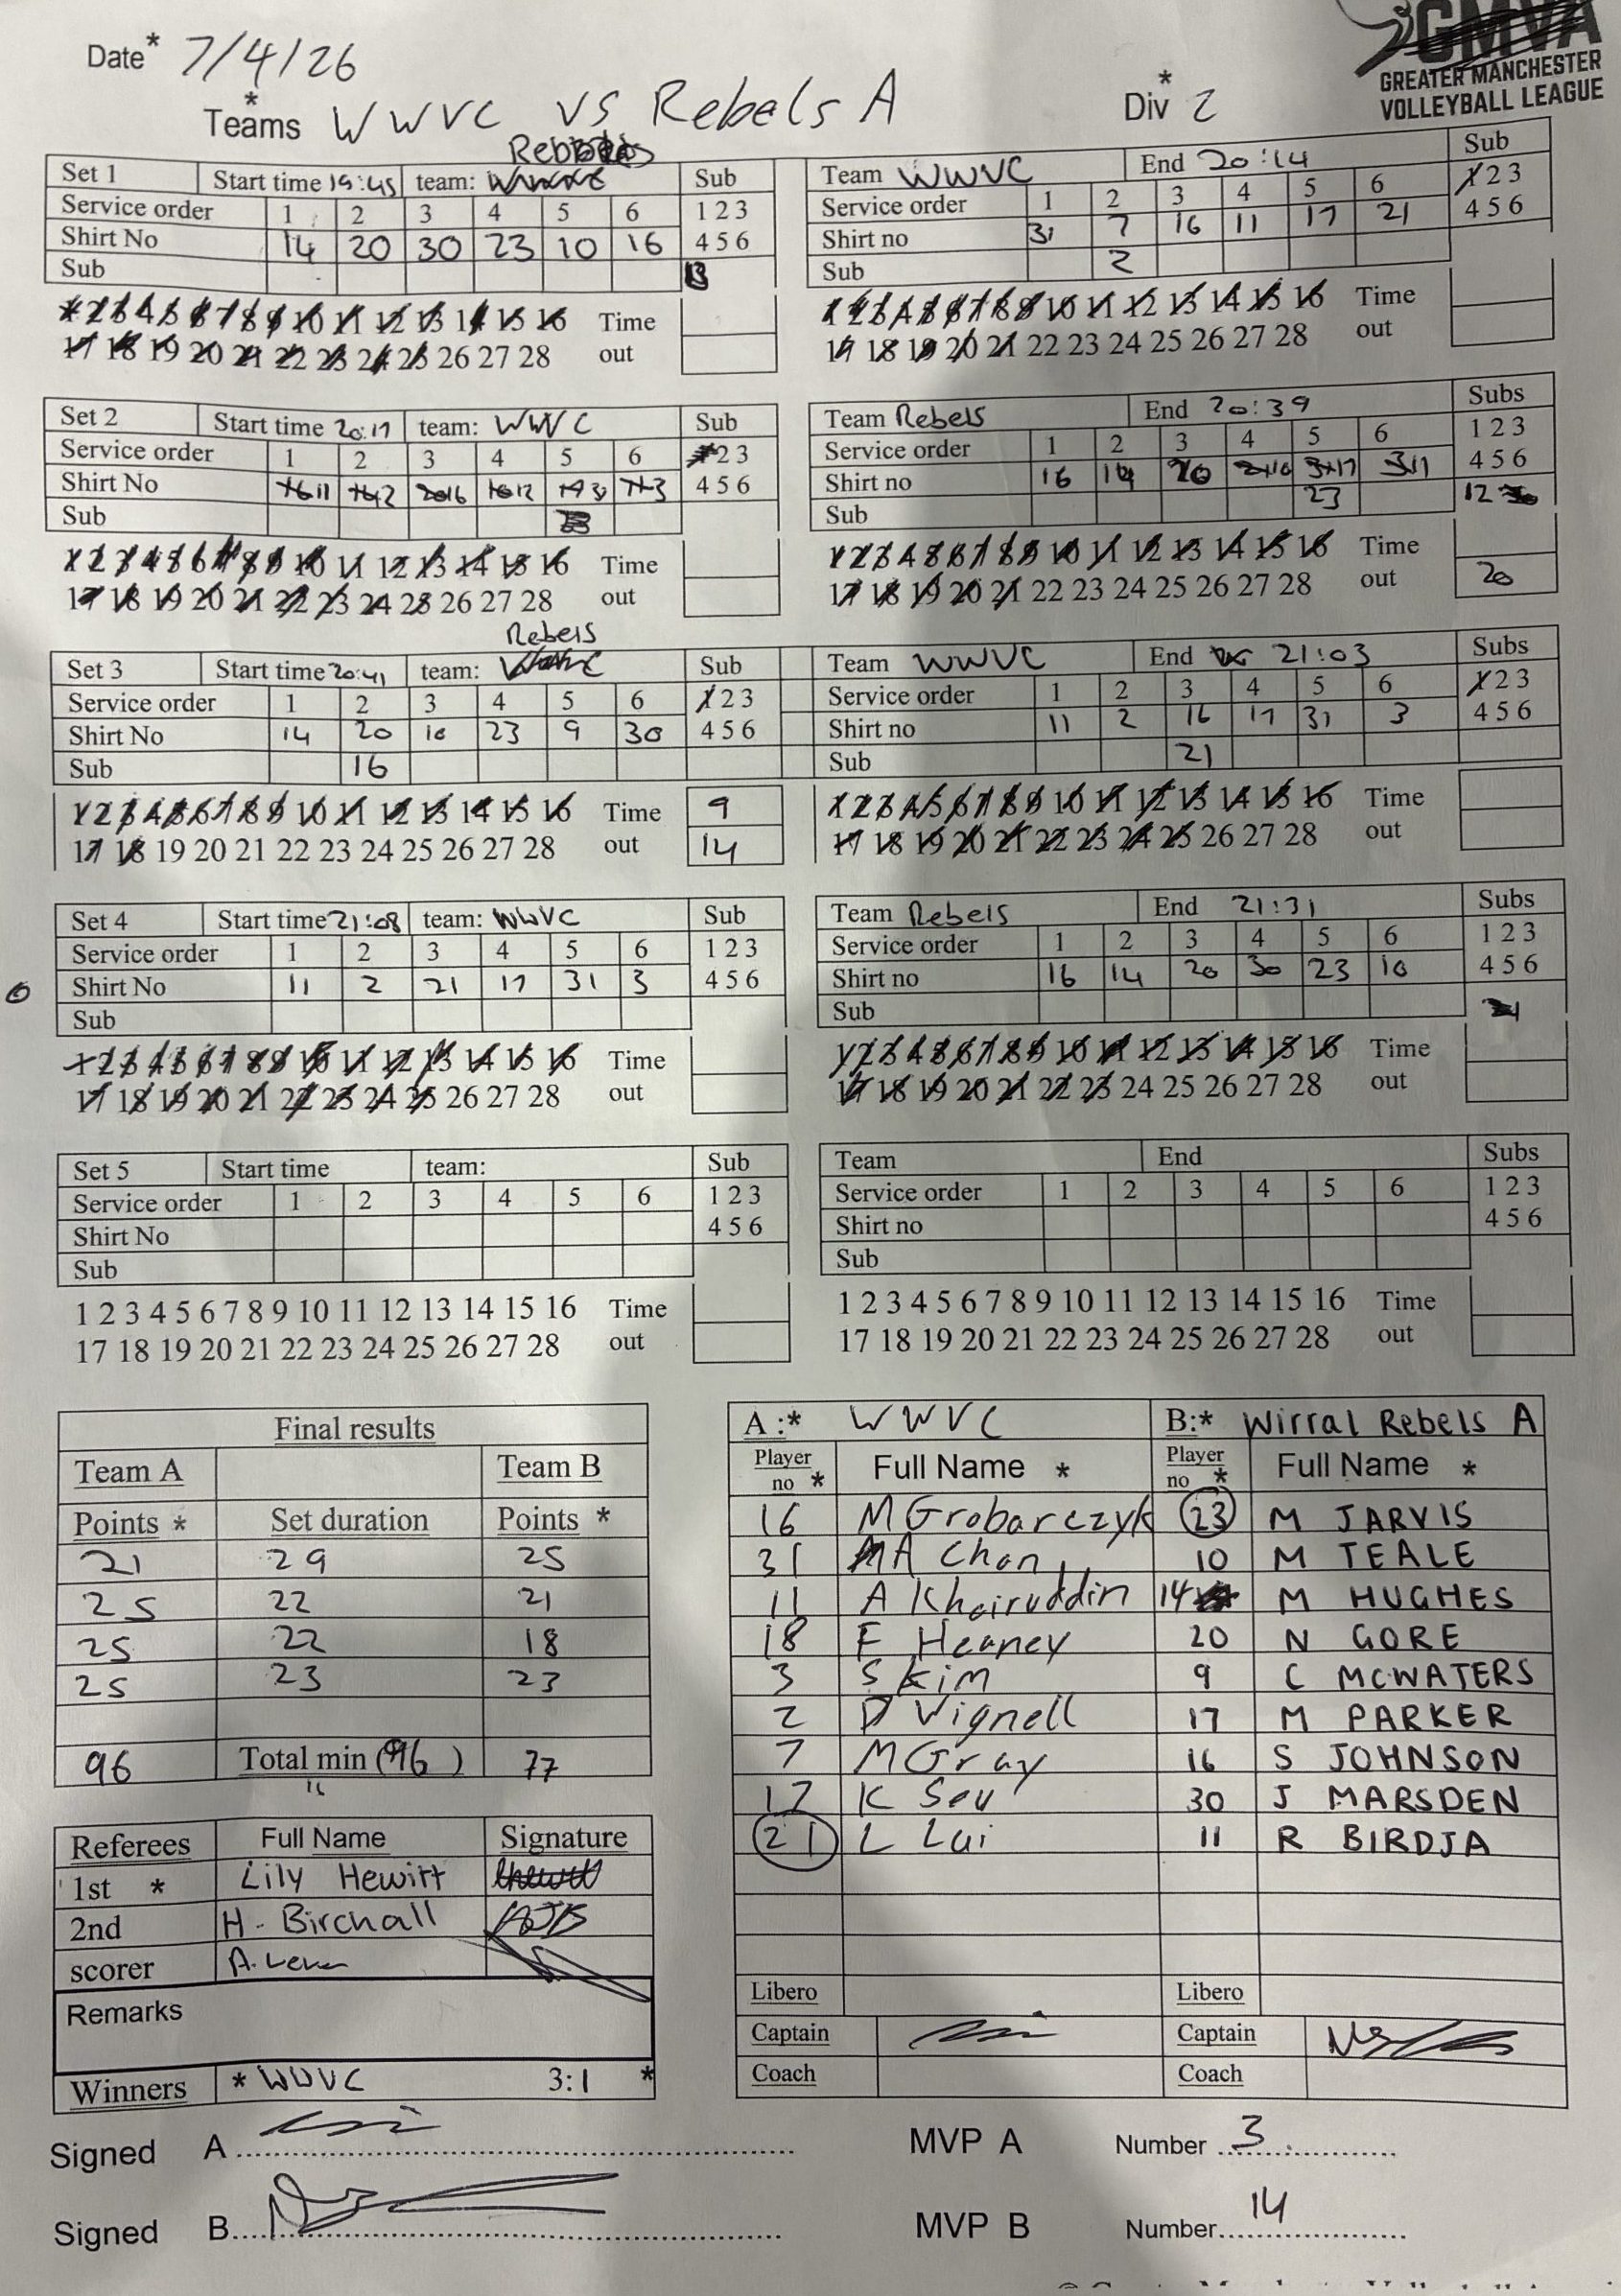 Date* 7/4/26
GMVA
GREATER MANCHESTER
VOLLEYBALL LEAGUE
Teams* WWVC VS Rebels A Div* 2
Set 1 Start time 19:45 team: Rebels Sub
Service order 1 2 3 4 5 6 1 2 3
Shirt No 14 20 30 23 10 16 4 5 6
Sub
1 2 3 4 5 6 7 8 9 10 11 12 13 14 15 16 Time
17 18 19 20 21 22 23 24 25 26 27 28 out
Team WWVC End 20:14 Sub
Service order 1 2 3 4 5 6 1 2 3
Shirt no 31 7 16 11 17 21 4 5 6
Sub 2
1 2 3 4 5 6 7 8 9 10 11 12 13 14 15 16 Time
17 18 19 20 21 22 23 24 25 26 27 28 out
Set 2 Start time 20:17 team: WWVC Sub
Service order 1 2 3 4 5 6 1 2 3
Shirt No 11 2 16 17 31 3 4 5 6
Sub
1 2 3 4 5 6 7 8 9 10 11 12 13 14 15 16 Time
17 18 19 20 21 22 23 24 25 26 27 28 out
Team Rebels End 20:39 Subs
Service order 1 2 3 4 5 6 1 2 3
Shirt no 16 14 20 4 5 6
Sub 23 12
1 2 3 4 5 6 7 8 9 10 11 12 13 14 15 16 Time
17 18 19 20 21 22 23 24 25 26 27 28 out 20
Set 3 Start time 20:41 team: Rebels Sub
Service order 1 2 3 4 5 6 1 2 3
Shirt No 14 20 10 23 9 30 4 5 6
Sub 16
1 2 3 4 5 6 7 8 9 10 11 12 13 14 15 16 Time 9
17 18 19 20 21 22 23 24 25 26 27 28 out 14
Team WWVC End 21:03 Subs
Service order 1 2 3 4 5 6 1 2 3
Shirt no 11 2 16 17 31 3 4 5 6
Sub 21
1 2 3 4 5 6 7 8 9 10 11 12 13 14 15 16 Time
17 18 19 20 21 22 23 24 25 26 27 28 out
Set 4 Start time 21:08 team: WWVC Sub
Service order 1 2 3 4 5 6 1 2 3
Shirt No 11 2 21 17 31 3 4 5 6
Sub
1 2 3 4 5 6 7 8 9 10 11 12 13 14 15 16 Time
17 18 19 20 21 22 23 24 25 26 27 28 out
Team Rebels End 21:31 Subs
Service order 1 2 3 4 5 6 1 2 3
Shirt no 16 14 20 30 23 10 4 5 6
Sub
1 2 3 4 5 6 7 8 9 10 11 12 13 14 15 16 Time
17 18 19 20 21 22 23 24 25 26 27 28 out
Set 5 Start time team: Sub
Service order 1 2 3 4 5 6 1 2 3
Shirt No 4 5 6
Sub
1 2 3 4 5 6 7 8 9 10 11 12 13 14 15 16 Time
17 18 19 20 21 22 23 24 25 26 27 28 out
Team End Subs
Service order 1 2 3 4 5 6 1 2 3
Shirt no 4 5 6
Sub
1 2 3 4 5 6 7 8 9 10 11 12 13 14 15 16 Time
17 18 19 20 21 22 23 24 25 26 27 28 out
Final results
Team A Team B
Points * Set duration Points *
21 29 25
25 22 21
25 22 18
25 23 23
96 Total min (96) 77
Referees Full Name Signature
1st * Lily Hewitt
2nd H. Birchall
scorer
Remarks
Winners * WWVC 3:1 *
A :* WWVC B:* Wirral Rebels A
Player no * Full Name * Player no * Full Name *
16 M Grobarczyk 23 M JARVIS
31 A Chan 10 M TEALE
11 A Khairuddin 14 M HUGHES
18 F Heaney 20 N GORE
3 S Kim 9 C MCWATERS
2 D Vignell 17 M PARKER
7 M Gray 16 S JOHNSON
17 K Seu 30 J MARSDEN
21 L Lui 11 R BIRDJA
Libero Libero
Captain Captain
Coach Coach
Signed A MVP A Number 3
Signed B MVP B Number 14